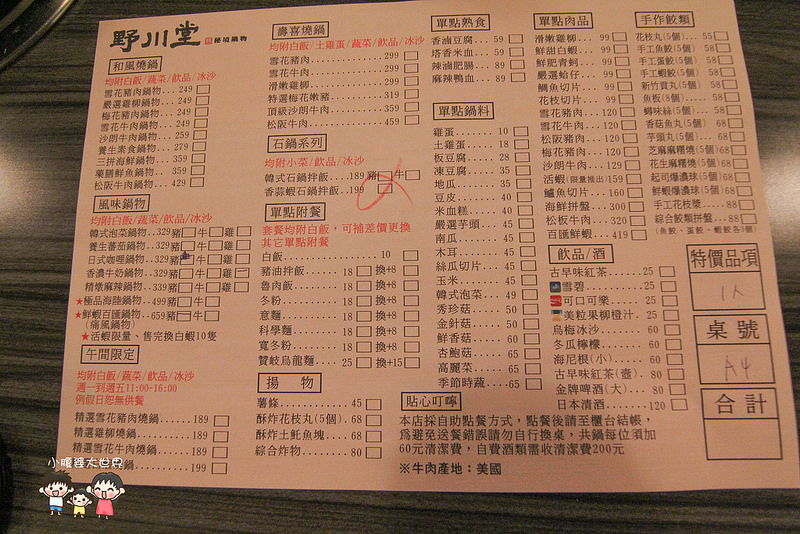 野川堂 秘境鍋物
和風燒鍋
均附白飯/蔬菜/飲品/冰沙
雪花豬肉鍋物...249
嚴選雞柳鍋物...249
梅花豬肉鍋物...249
雪花牛肉鍋物...249
沙朗牛肉鍋物...259
養生素食鍋物...279
三拼海鮮鍋物...359
藥膳鮮魚鍋物...359
松阪牛肉鍋物...429
風味鍋物
均附白飯/蔬菜/飲品/冰沙
韓式泡菜鍋物..329豬 牛 雞
養生蕃茄鍋物..329豬 牛 雞
日式咖哩鍋物..329豬 牛 雞
香濃牛奶鍋物..329豬 牛 雞
精燉麻辣鍋物..339豬 牛 雞
★極品海陸鍋物..499豬 牛
★鮮蝦百匯鍋物..659豬 牛
(痛風鍋物)
★活蝦限量、售完換白蝦10隻
午間限定
均附白飯/蔬菜/飲品/冰沙
週一到週五11:00-16:00
例假日恕無供餐
精選雪花豬肉燒鍋......189
精選雞柳燒鍋......189
精選雪花牛肉燒鍋......189
鍋......199
壽喜燒鍋
均附白飯/土雞蛋/蔬菜/飲品/冰沙
雪花豬肉...299
雪花牛肉...299
滑嫩雞柳...299
特選梅花嫩豬...319
頂級沙朗牛肉...359
松阪牛肉...459
石鍋系列
均附小菜/飲品/冰沙
韓式石鍋拌飯...189豬 牛
香蒜蝦石鍋拌飯.199
單點附餐
套餐均附白飯，可補差價更換
其它單點附餐
白飯...10
豬油拌飯...18 換+8
魯肉飯...18 換+8
冬粉...18 換+8
意麵...18 換+8
科學麵...18 換+8
寬冬粉...18 換+8
贊岐烏龍麵...25 換+15
揚 物
薯條...45
酥炸花枝丸(5個).68
酥炸土魠魚塊...68
綜合炸物...80
單點熟食
香滷豆腐...59
塔香米血...59
辣滷肥腸...89
麻辣鴨血...89
單點鍋料
雞蛋...10
土雞蛋...18
板豆腐...28
凍豆腐...35
地瓜...35
豆皮...40
米血糕...40
嚴選芋頭...45
南瓜...45
木耳...45
絲瓜切片...45
玉米...45
韓式泡菜...49
秀珍菇...50
金針菇...50
鮮香菇...60
杏鮑菇...65
高麗菜...65
季節時蔬...65
單點肉品
滑嫩雞柳...99
鮮甜白蝦...99
鮮肥青蚵...99
嚴選蛤仔...99
鯛魚切片...99
花枝切片...99
雪花豬肉...120
雪花牛肉...120
松阪豬肉...120
梅花豬肉...120
沙朗牛肉...120
活蝦(限量推出)159
鱸魚切片...160
海鮮拼盤...300
松板牛肉...320
百匯鮮蝦...419
飲品/酒
古早味紅茶...25
雪碧...25
可口可樂...25
美粒果柳橙汁.25
烏梅冰沙...60
冬瓜檸檬...60
海尼根(小)...60
古早味紅茶(壺).80
金牌啤酒(大)...80
日本清酒...120
手作餃類
花枝丸(5個)...55
手工魚餃(5個)..58
手工蛋餃(5個)..58
手工蝦餃(5個)..58
新竹貢丸(5個)..58
魚板(8個)...58
蟳味絲(5個)...58
香菇魚丸(5個)..68
芋頭丸(5個)...68
芝麻麻糬燒(5個)68
花生麻糬燒(5個)68
起司爆濃球(5個)68
鮮蝦爆濃球(5個)68
手工花枝漿...88
綜合餃類拼盤...88
(魚餃、蛋餃、蝦餃各3個)
特價品項
1人
桌 號
A4
合 計
貼心叮嚀
本店採自助點餐方式，點餐後請至櫃台結帳，
為避免送餐錯誤請勿自行換桌，共鍋每位須加
60元清潔費，自費酒類需收清潔費200元
※牛肉產地：美國
小腹婆大世界